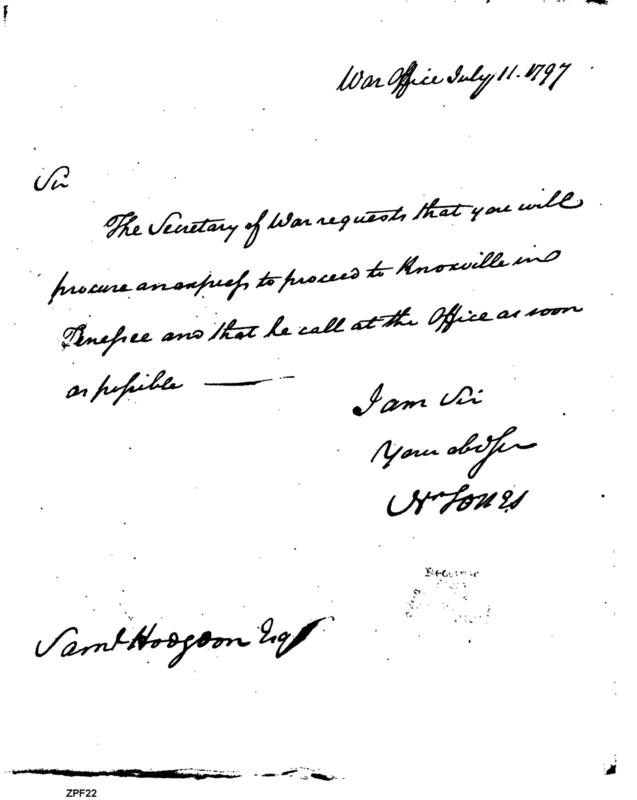 War Office July 11. 1797
Sir
The Secretary of War requests that you will
procure an express to proceed to Knoxville in
Tenessee and that he call at the Office as soon
as possible
I am Sir
Your obd Ser
Wm Jones
Saml Hodgdon Esqr
ZPF22